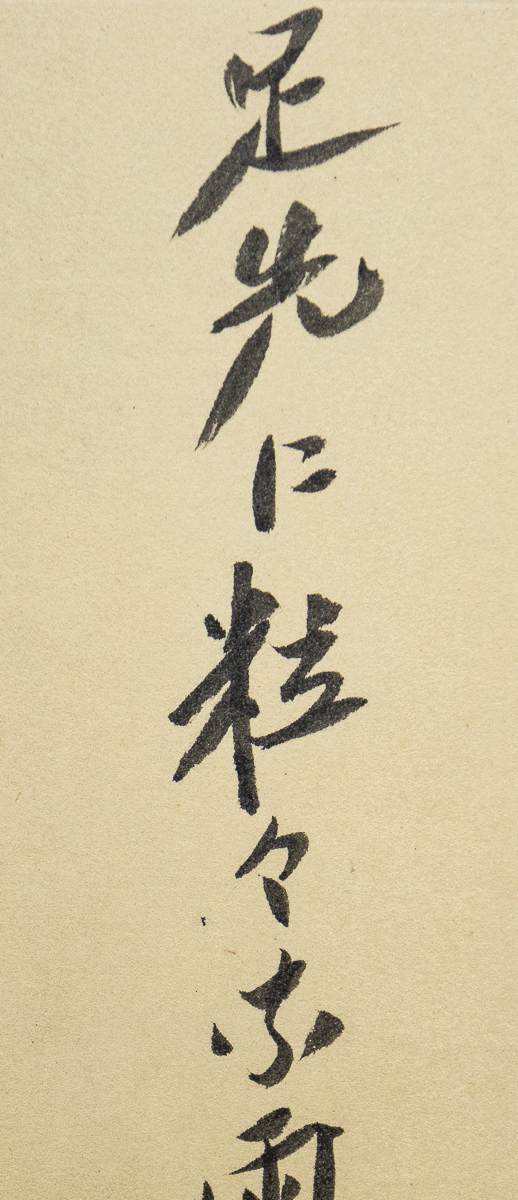 足先に粒々